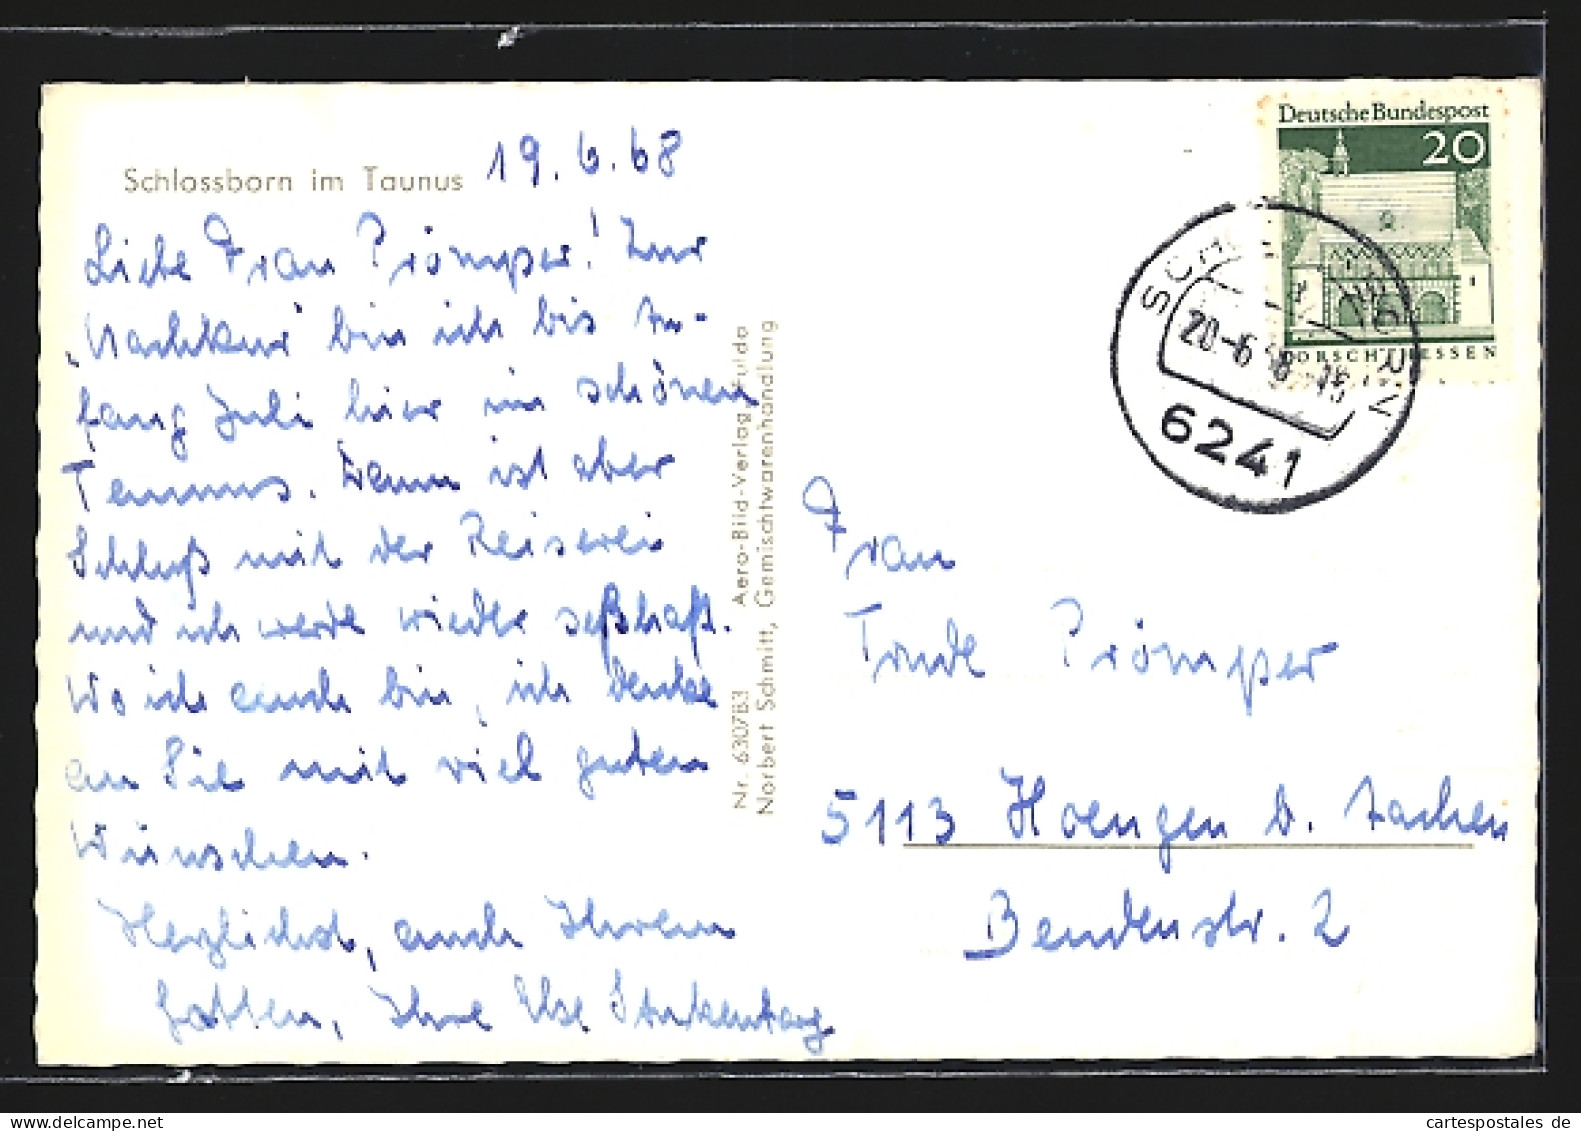 Schlossborn im Taunus
19.6.68
Liebe Frau Prömper! Zur
„Nachkur" bin ich bis An-
fang Juli hier im schönen
Taunus. Dann ist aber
Schluß mit der Reiserei
und ich werde wieder seßhaft.
Wo ich auch bin, ich denke
an Sie mit viel guten
Wünschen.
Herzlichst, auch Ihrem
Gatten, Ihre Else
Nr. 630783 Aero-Bild-Verlag, Fulda
Norbert Schmitt, Gemischtwarenhandlung
Deutsche Bundespost
20
LORSCH/HESSEN
20.-6
6241
Frau
Trude Prömper
5113 Hoengen b. Aachen
Bendenstr. 2
cartespostales de